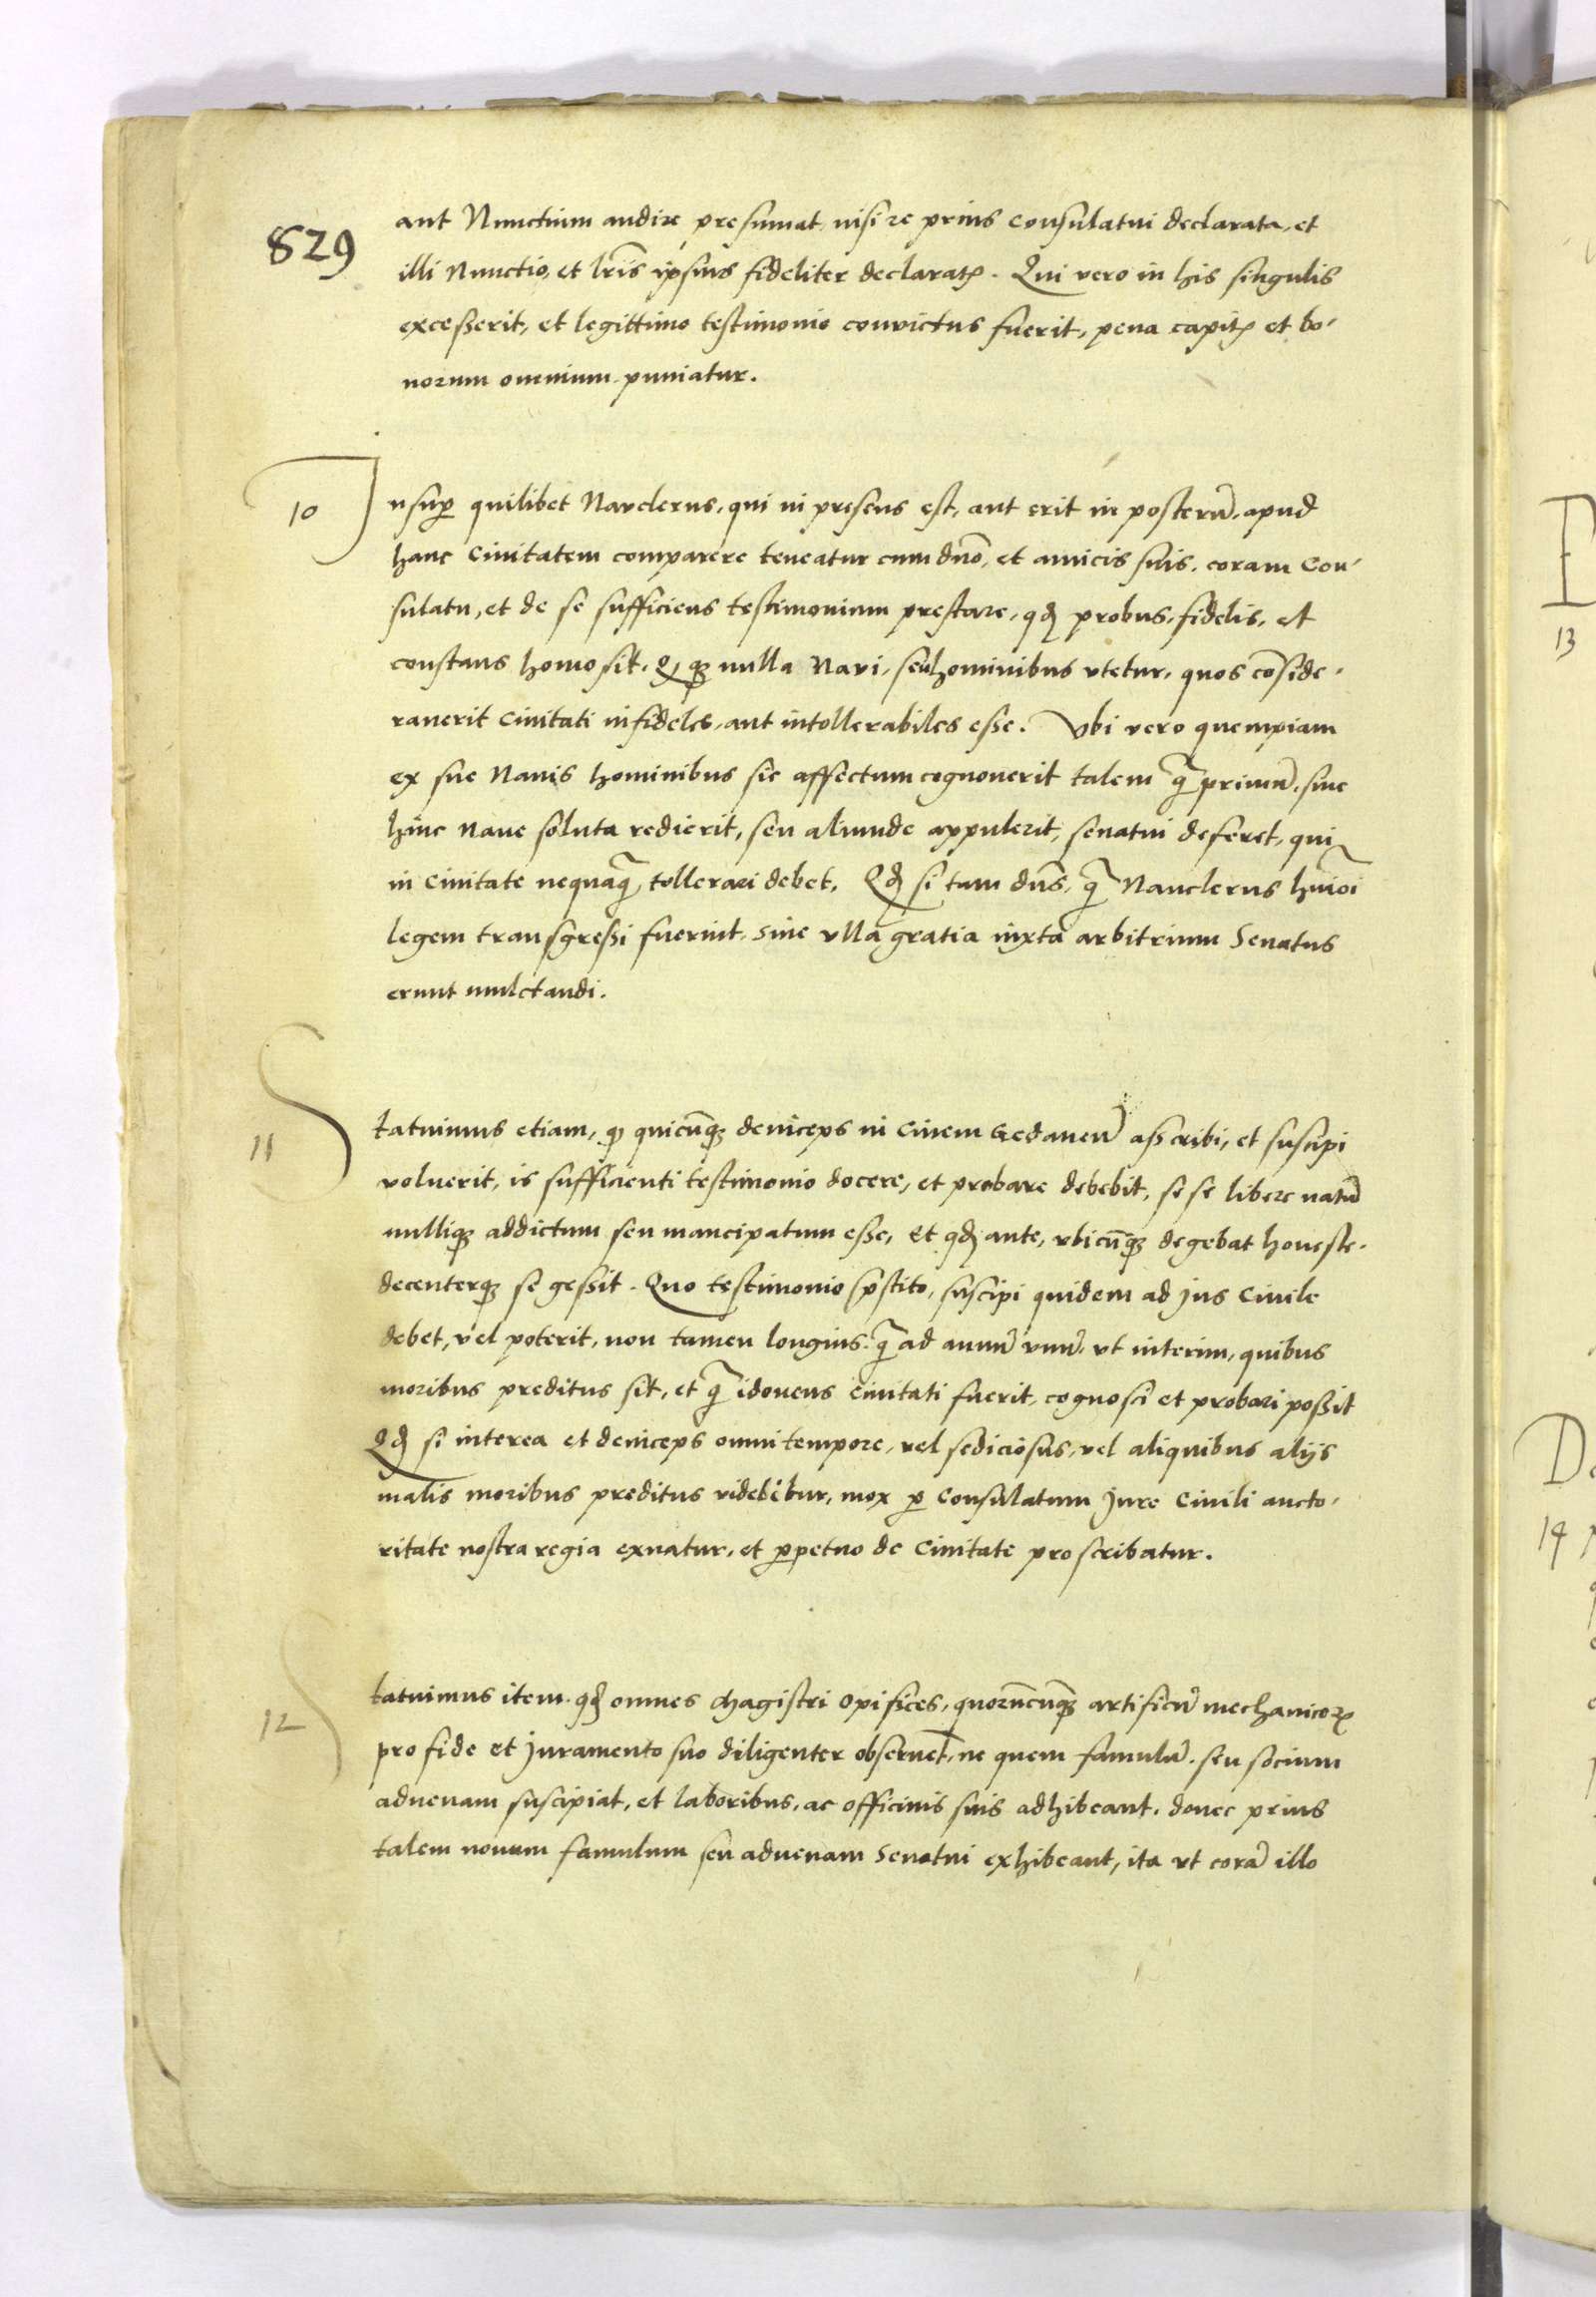 829
aut Nunctium audire presumat nisi re prius Consulatui declarata, et
illi Nunctio, et lr̃is ipsius fideliter declaratꝭ. Qui vero in his singulis
excesserit, et legittimo testimonio convictus fuerit, pena capitꝭ et bo-
norum omnium puniatur.
10 Insuꝑ quilibet Navclerus, qui in presens est, aut erit in posterũ, apud
hanc Civitatem comparere teneatur cum dño, et amicis suis, coram Con-
sulatu, et de se sufficiens testimonium prestare, qđ probus, fidelis, et
constans homo sit, Qꝗ nulla Navi, seu hominibus vtetur, quos cõside-
raverit Civitati infideles, aut intollerabiles esse. Vbi vero quempiam
ex sue Navis hominibus sic affectum cognoverit talem q̃ primũ, sive
hinc Nave soluta redierit, seu aliunde appulerit, senatui deferet, qui
in Civitate nequaq̃, tollerari debet. Qđ si tam dñs, q̃ Nauclerus hmõi
legem transgressi fuerint, sine vlla gratia iuxta arbitrium Senatus
erunt mulctandi.
11 Statuimus etiam, ꝙ quicũqꝫ deinceps in Civem Gedaneñ ascribi, et suscipi
voluerit, is sufficienti testimonio docere, et probare debebit, se se libere natũ
nulliqꝫ addictum seu mancipatum esse, et qđ ante, vbicũqꝫ degebat honeste,
decenterqꝫ se gessit. Quo testimonio p̃stito, suscipi quidem ad Jus Civile
debet, vel poterit, non tamen longius, q̃ ad annũ vnũ, vt interim, quibus
moribus preditus sit, et q̃ idoneus Civitati fuerit, cognosci et probari possit
Qđ si interea et deinceps omni tempore, vel sediciosus, vel aliquibus aliis
malis moribus preditus videbitur, mox ꝑ Consulatum Jure Civili aucto-
ritate nostra regia exuatur, et ꝑpetuo de Civitate proscribatur.
12 Statuimus item qđ omnes Magistri Opifices, quorũcũqꝫ artificiũ mechanicoꝝ
pro fide et Juramento suo diligenter observẽt, ne quem famulũ, seu socium
advenam suscipiat, et laboribus, ac officinis suis adhibeant, donec prius
talem novum famulum seu advenam Senatui exhibeant, ita vt corã illo
13
14